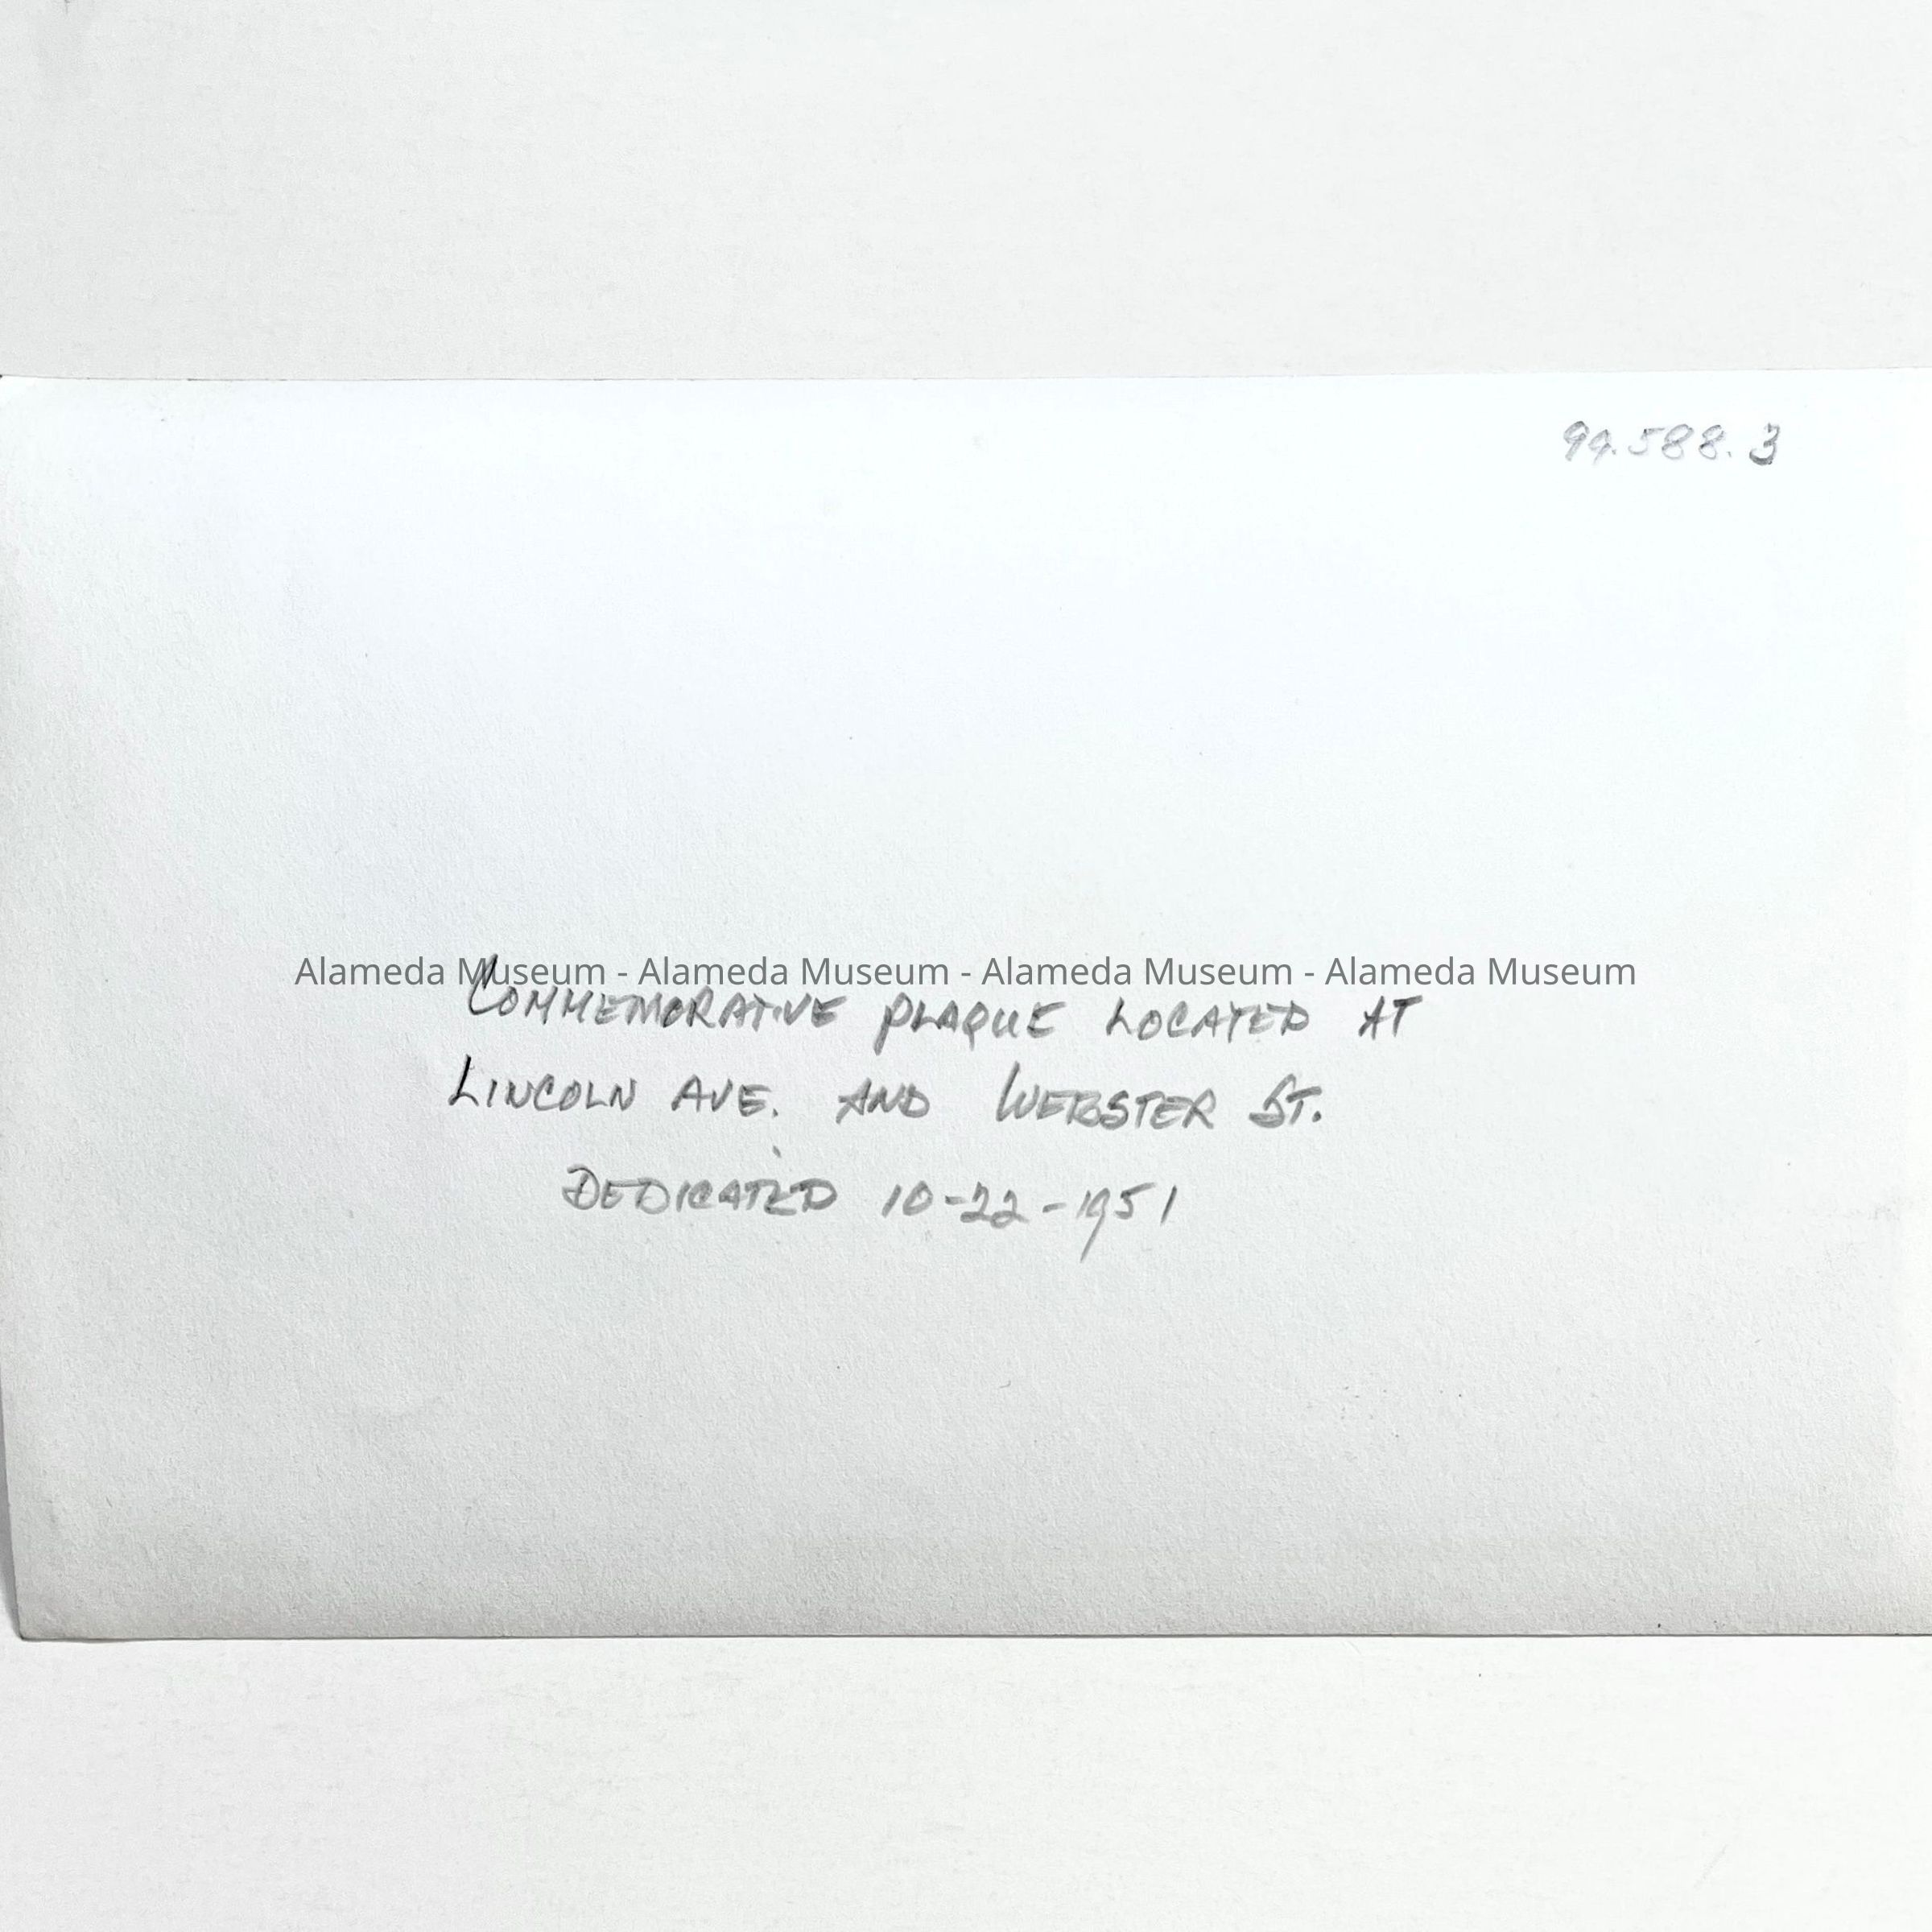 99.588.3
Alameda Museum - Alameda Museum - Alameda Museum - Alameda Museum
COMMEMORATIVE PLAQUE LOCATED AT
LINCOLN AVE. AND WEBSTER ST.
DEDICATED 10-22-1951